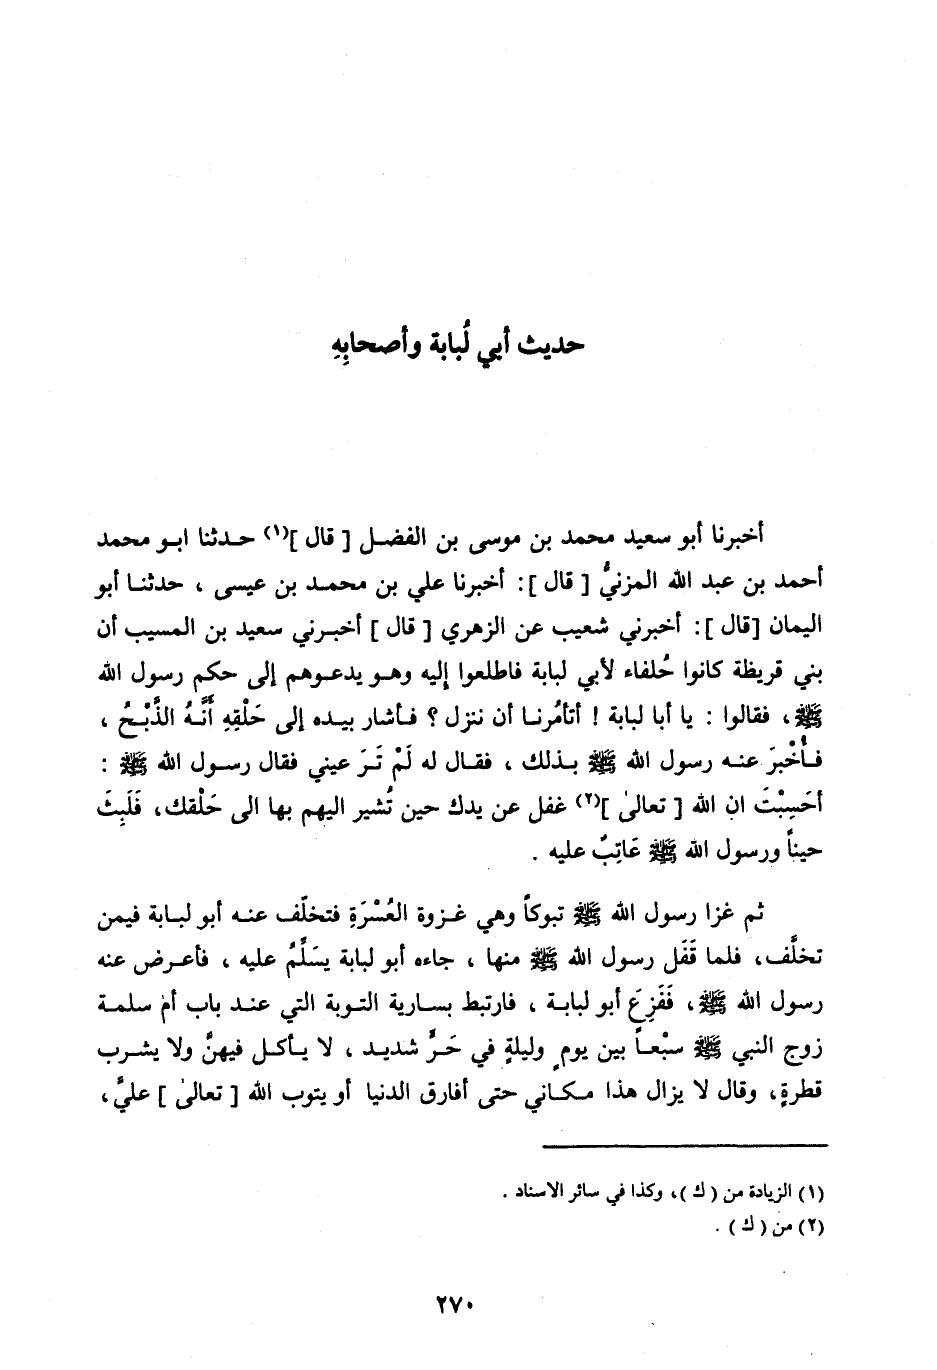 حديث أبي لُبابة وأصحابِهِ
أخبرنا أبو سعيد محمد بن موسى بن الفضل [ قال ](١) حدثنا ابو محمد
أحمد بن عبد الله المزنيُّ [ قال ] : أخبرنا علي بن محمد بن عيسى ، حدثنا أبو
اليمان [قال ] : أخبرني شعيب عن الزهري [ قال ] أخبرني سعيد بن المسيب أن
بني قريظة كانوا حُلفاء لأبي لبابة فاطلعوا إليه وهو يدعوهم إلى حكم رسول الله
ﷺ، فقالوا : يا أبا لبابة ! أتأمُرنا أن ننزل ؟ فأشار بيده إلى حَلْقِهِ أَنَّهُ الذَّبْحُ ،
فأُخْبِرَ عنه رسول الله ﷺ بذلك ، فقال له لَمْ تَرَ عيني فقال رسول الله ﷺ :
أحَسِبْتَ ان الله [ تعالىٰ ](٢) غفل عن يدك حين تُشير اليهم بها الى حَلْقك، فَلَبِثَ
حيناً ورسول الله ﷺ عَاتِبٌ عليه .
ثم غزا رسول الله ﷺ تبوكاً وهي غزوة العُسْرَةِ فتخلّف عنه أبو لبابة فيمن
تخلَّف، فلما قَفَل رسول الله ﷺ منها ، جاءه أبو لبابة يسَلِّمُ عليه ، فأعرض عنه
رسول الله ﷺ، فَفَزِعَ أبو لبابة ، فارتبط بسارية التوبة التي عند باب أم سلمة
زوج النبي ﷺ سبْعاً بين يومٍ وليلةٍ في حَرٍّ شديد ، لا يأكل فيهنَّ ولا يشرب
قطرةٍ، وقال لا يزال هذا مكاني حتى أفارق الدنيا أو يتوب الله [ تعالىٰ ] عليَّ،
(١) الزيادة من ( ك )، وكذا في سائر الاسناد .
(٢) من ( ك ) .
٢٧٠